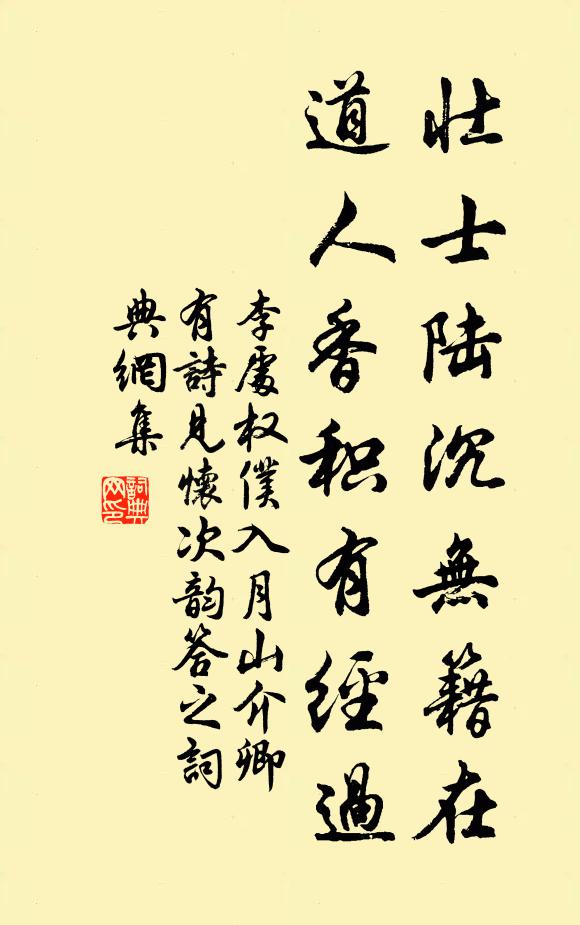 壮士陆沉無籍在
道人香积有經過
李處权僕入月山介卿
有詩見懷次韵答之詞
典網集
詞典网印